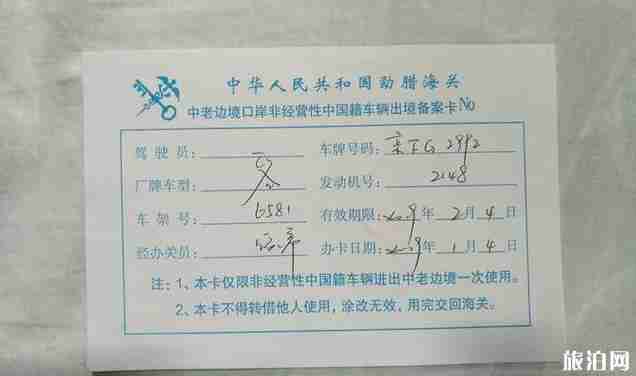 中华人民共和国勐腊海关
中老边境口岸非经营性中国籍车辆出境备案卡 No
驾驶员： 车牌号码：京FG2992
厂牌车型： 发动机号：2148
车架号 6581 有效期限：2019年2月4日
经办关员： 办卡日期：2019年1月4日
注：1、本卡仅限非经营性中国籍车辆进出中老边境一次使用。
2、本卡不得转借他人使用，涂改无效，用完交回海关。
旅泊网